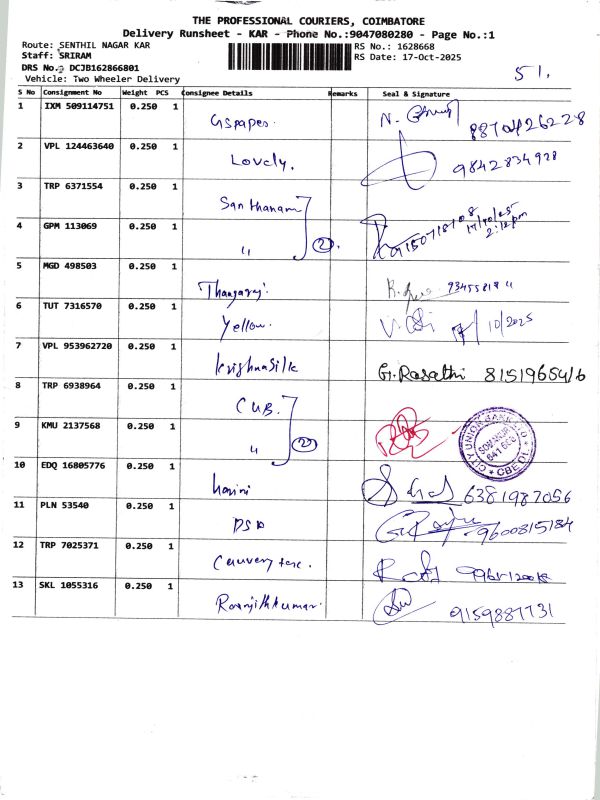 THE PROFESSIONAL COURIERS, COIMBATORE
Delivery Runsheet - KAR - Phone No.:9047080280 - Page No.:1
Route: SENTHIL NAGAR KAR
RS No.: 1628668
Staff: SRIRAM
RS Date: 17-Oct-2025
DRS No.: DCJB162866801
Vehicle: Two Wheeler Delivery
51.
S No Consignment No Weight PCS Consignee Details Remarks Seal & Signature
1 IXM 509114751 0.250 1 Gspapes. N. 8870426228
2 VPL 124463640 0.250 1 Lovely. 9842834928
3 TRP 6371554 0.250 1 Santhanam
4 GPM 113069 0.250 1 " 2. 17/10/25 2:12pm
5 MGD 498503 0.250 1 Thangaraj.
6 TUT 7316570 0.250 1 Yellow. 17/10/2025
7 VPL 953962720 0.250 1 KrishnaSilk G. Rasathi 8151965416
8 TRP 6938964 0.250 1 CUB.
9 KMU 2137568 0.250 1 " 2 CITY UNION BANK LTD CBE
10 EDQ 16805776 0.250 1 harini 6381987056
11 PLN 53540 0.250 1 DSA 9600815184
12 TRP 7025371 0.250 1 Cauvery tex.
13 SKL 1055316 0.250 1 Ranjithkumar. 9159887731